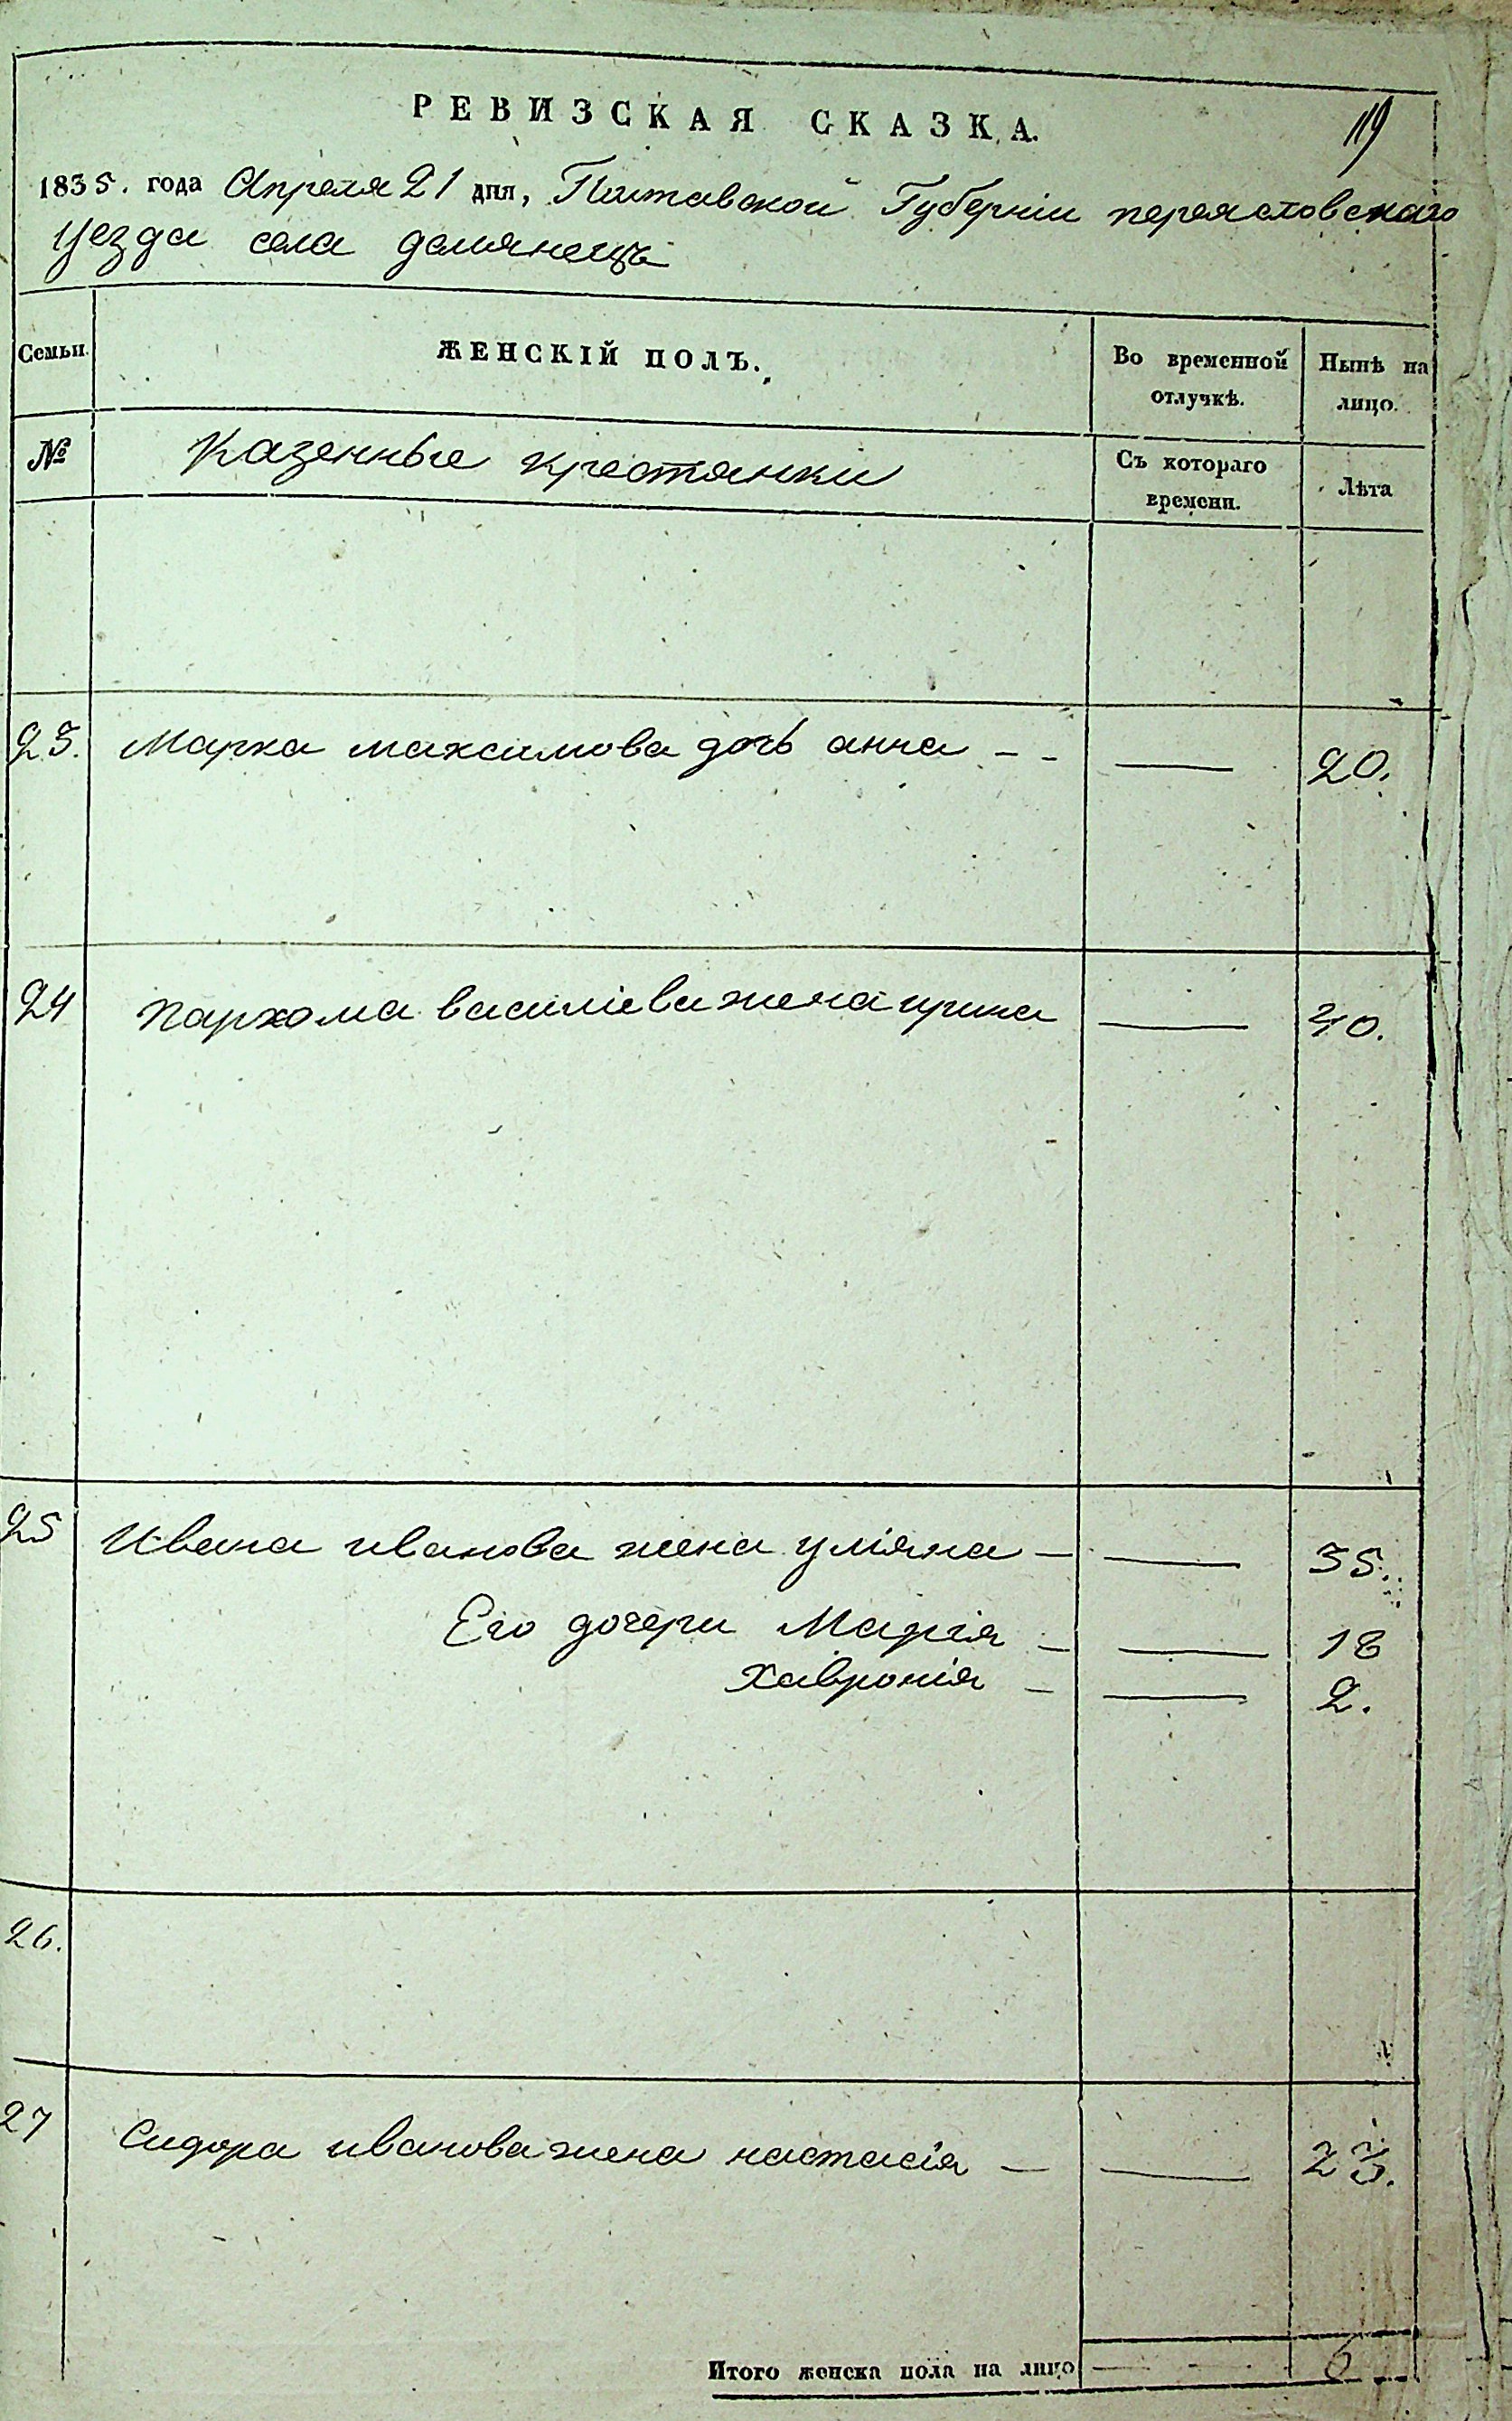 РЕВИЗСКАЯ СКАЗКА.
119
1835. года Апреля 21 дня, Полтавской Губерніи переясловскаго
Уезда села демянецъ
Семьи. ЖЕНСКІЙ ПОЛЪ. Во временной отлучкѣ. Нынѣ на лицо.
№ Казенные крестянки Съ котораго времени. Лѣта
23. Марка максимова дочь анна - - — 20.
24 Пархома василіева жена ирина — 40.
25 Ивана иванова жена уліяна - — 35.
Его дочери Марія - — 18
Хавронія - — 2.
26.
27 Сидора иванова жена настасія - — 23.
Итого женска пола на лицо — 6